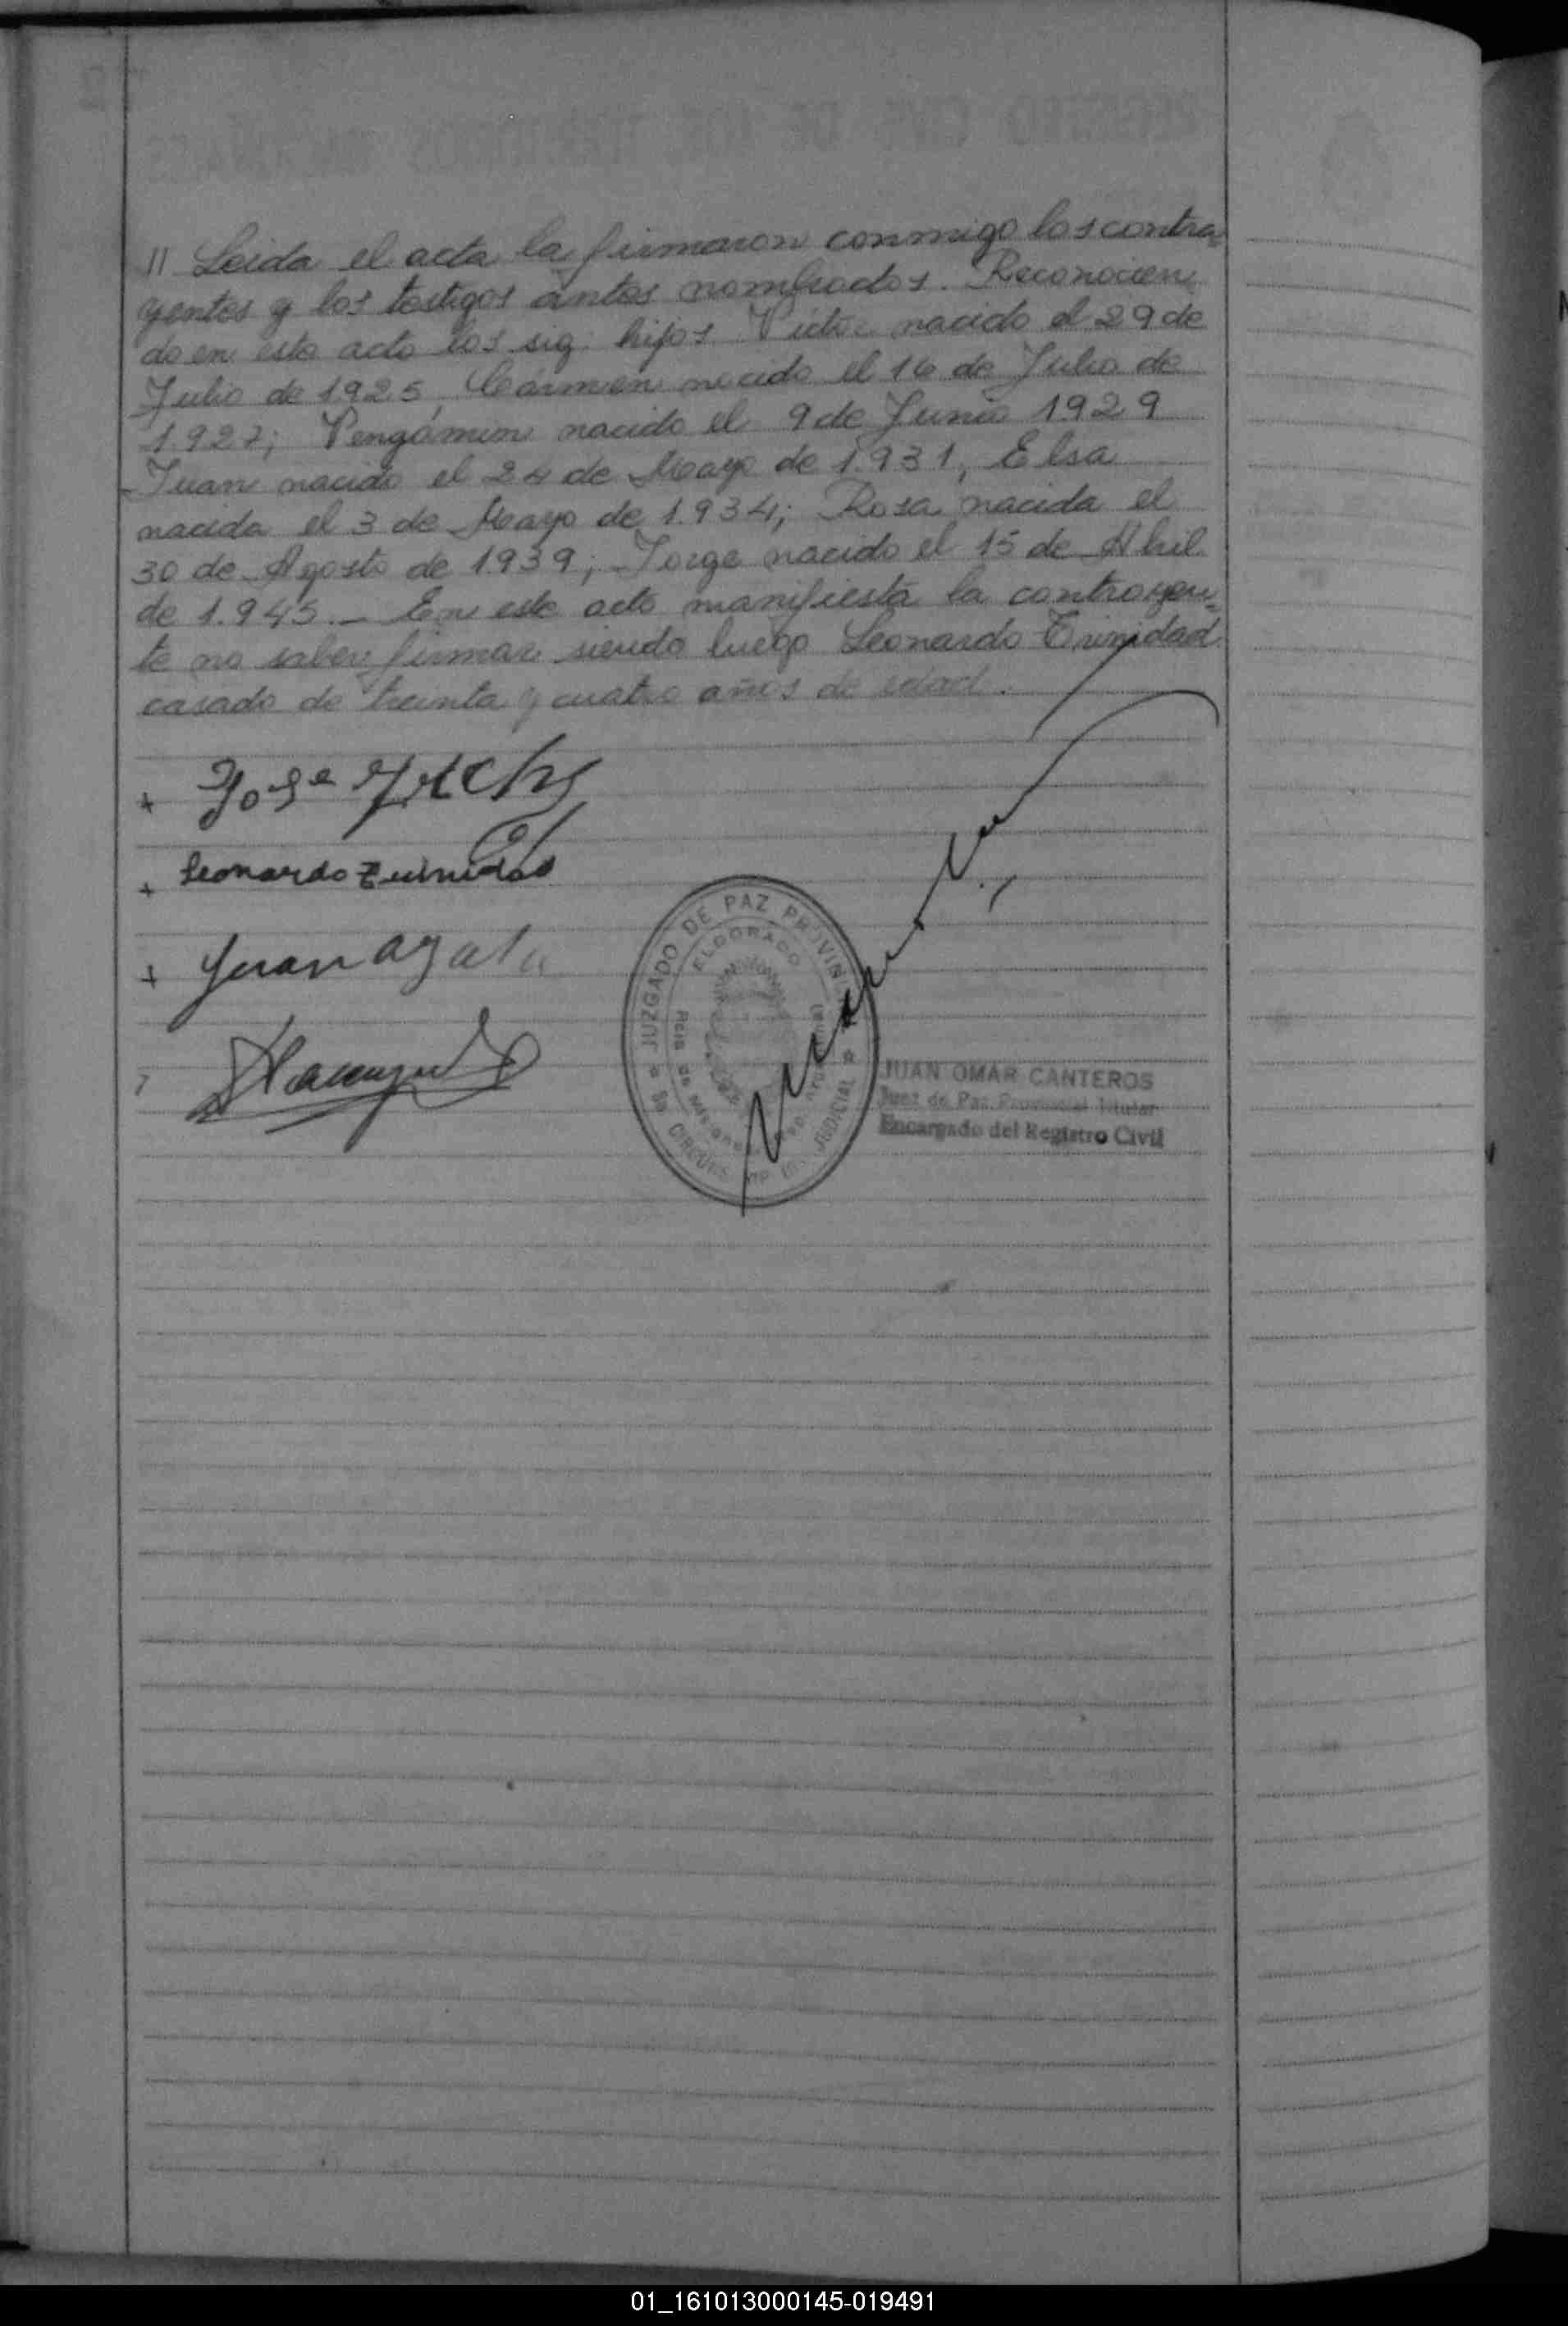 REGISTRO CIVIL DE LOS TERRITORIOS NACIONALES
11 Leida el acta la firmaron conmigo los contra=
yentes y los testigos antes nombrados. Reconocien
do en este acto los sig. hijos Victor nacido el 29 de
Julio de 1925, Cármen nacido el 16 de Julio de
1.927; Vengámin nacido el 9 de Junio 1929
Juan nacido el 24 de Mayo de 1.931, Elsa
nacida el 3 de Mayo de 1.934; Rosa nacida el
30 de Agosto de 1939; Jorge nacido el 15 de Abril
de 1.945.- En este acto manifiesta la contrayen=
te no saber firmar siendo luego Leonardo Trinidad
casado de treinta y cuatro años de edad.
+ Jose
+ Leonardo Trinidad
+ Juan
JUZGADO DE PAZ PROVINCIAL
ELDORADO
JUDICIAL
JUAN OMAR CANTEROS
Juez de Paz Provincial Titular
Encargado del Registro Civil
01_161013000145-019491